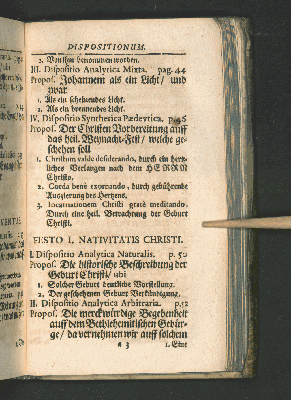 DISPOSITIONUM.
2. Von ihm benommen worden.
III. Dispositio Analytica Mixta. pag. 44
Propos. Johannem als ein Licht/ und
zwar
1. Als ein scheinendes Licht.
2. Als ein brennendes Licht.
IV. Dispositio Synthetica Pædevtica. p. 46
Propos. Der Christen Vorbereitung auff
das heil. Weynacht-Fest/ welche ge-
schehen soll
1. Christum valde desiderando, durch ein hertz-
liches Verlangen nach dem HERRN
Christo.
2. Corda benè exornando, durch gebührende
Auszierung des Hertzens.
3. Incarnationem Christi gratè meditando.
Durch eine heil. Betrachtung der Geburt
Christi.
FESTO I. NATIVITATIS CHRISTI.
I. Dispositio Analytica Naturalis. p. 50
Propos. Die historische Beschreibung der
Geburt Christi/ ubi
1. Solcher Geburt deutliche Vorstellung.
2. Der geschehenen Geburt Verkündigung.
II. Dispositio Analytica Arbitraria. p. 52
Propos. Die merckwürdige Begebenheit
auff dem Bethlehemitischen Gebür-
ge/ da vernehmen wir auff solchem
a 3 1. Eine